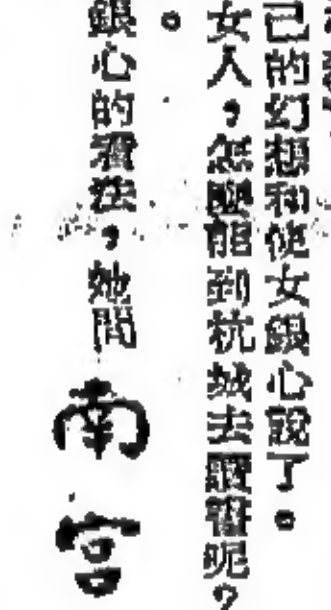 己的幻想和使女銀心說了。
女人，怎麼能到杭城去讀書呢？
。
銀心的看法，她問
南宮